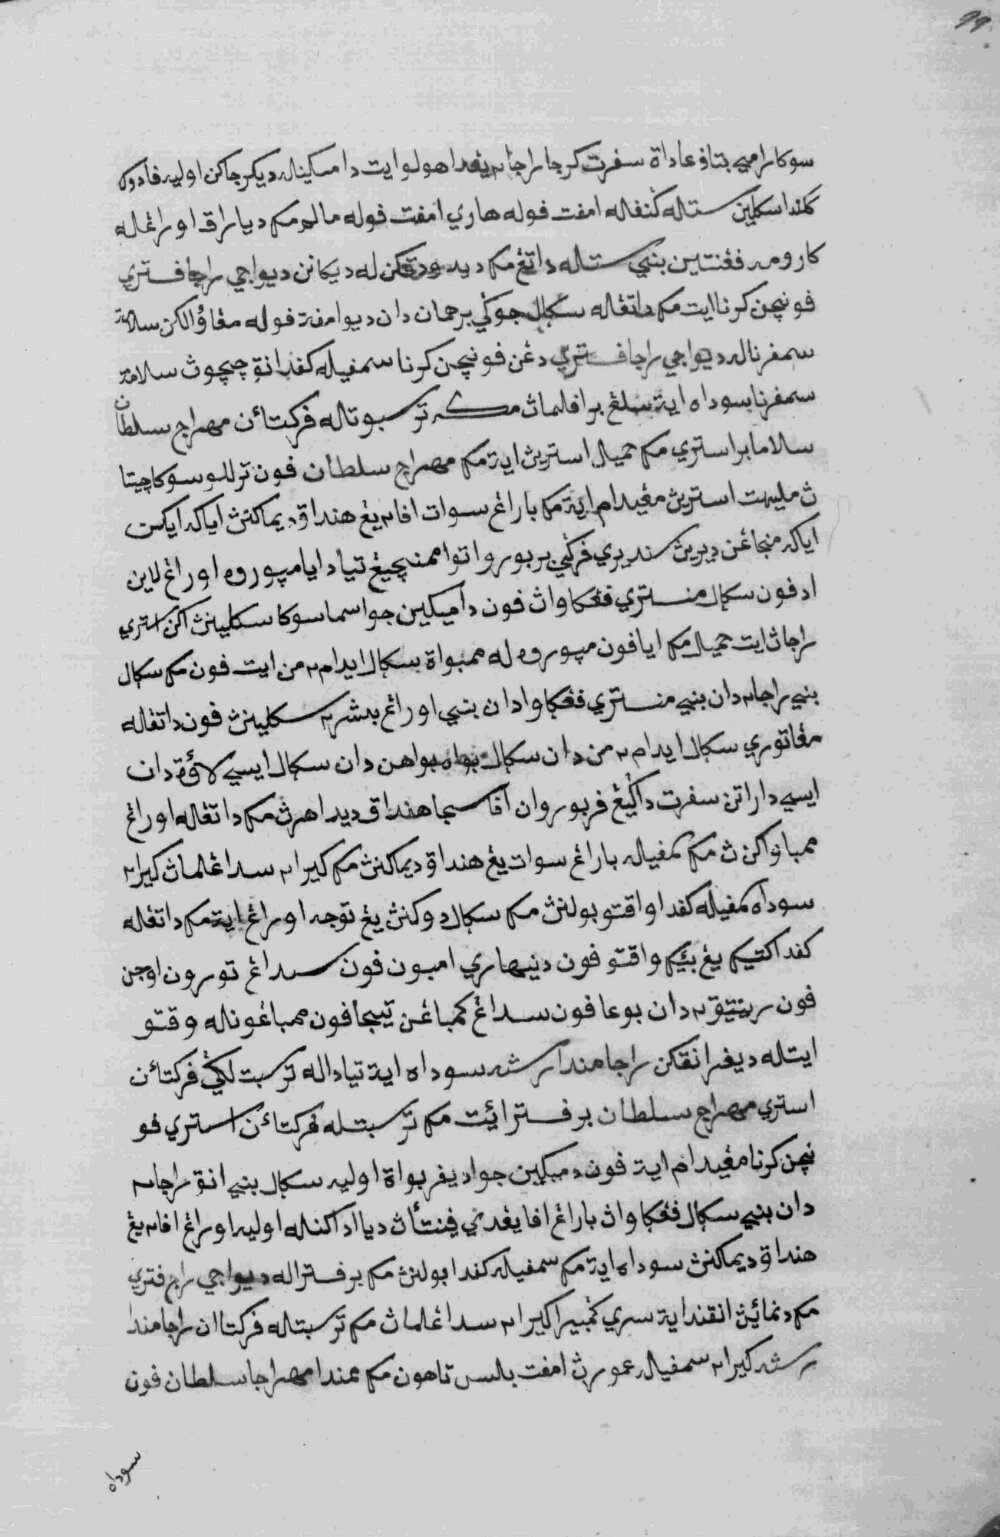 99
سوكارامي بتاڤ عاداة سڤرت كرجا راجا٢ يڠدا هولو ايت دمكينله ديكرجاكن اوليه ڤادوك
كندا سكلين ستله كنڤله امڤت ڤوله هاري امڤت ڤوله مالم مك دياراق اورڠله
كارومه ڤڠنتين بني ستله داتڠ مك ديدودقكن له ديكانن ديواجي راج ڤتري
ڤونچن كرنا ايت مك داتڠله سكل جوڬي برهمان دان ديوا ڤون ڤوله مڠاڤالكن سلامة
سمڤرناله ديواجي راجا ڤتري دڠن ڤونچن كرنا سمڤيله كڤد انق چوچوڽ سلامة
سمڤرنا سوداه اية سلڠ براڤلماڽ مك ترسبوتاله ڤركتاٴن مهراج سلطان
سلاما براستري مك حميل استريڽ اية مك مهراج سلطان ڤون ترللو سوكاچيتا
ڽ مليهت استريڽ مڠيدام اية مك بارڠ سوات اڤا٢ يڠ هنداق ديماكنڽ اياكه ايكس
اياكه منجاڠن ديريڽ سنديري ڤركي بربورو اتوا ممنچيڠ تياد ايا مپوروه اورڠ لاين
ادڤون سكل منتري ڤڠكاواڽ ڤون دميكين جوا سما سوكا سكلينڽ اكن استري
راجاڽ ايت حميل مك ايا ڤون مپوروه له ممبواة سكل ايدام٢من ايت ڤون مك سكل
بني راجا٢ دان بني منتري ڤڠكاوا دان بني اورڠ بسر٢ سكلينڽ ڤون داتڠله
مڠاتوري سكل ايدام٢من دان سكل بواه بواهن دان سكل ايسي لاوة دان
ايسي داراتن سڤرت داڬيڠ ڤربوروان اڤا سجا هنداق ديداهرڽ مك داتڠله اورڠ
ممباواكن ڽ مك كمڤيله بارڠ سوات يڠ هنداق ديماكنڽ مك كيرا٢ سداڠلماڽ كيرا٢
سوداه كمڤيله كڤدا واقتو بولنڽ مك سكل دوكنڽ يڠ توجه اورڠ اية مك داتڠله
كڤدا كتيك يڠ بيك واقتو ڤون دنيهاري امبون ڤون سداڠ تورون اوجن
ڤون رينتيق٢ دان بوڠا ڤون سداڠ كمباڠن تيبجا ڤون ممباڠونله وقتو
ايتله ديڤرانقكن راجا مندا رشه سوداه اية تياداله ترسبت لڬي ڤركتاٴن
استري مهراج سلطان برڤترا ايت مك ترسبتله ڤركتاٴن استري ڤو
نچن كرنا مڠيدام اية ڤون دميكين جوا ديڤربواة اوليه سكل بني انق راجا٢
دان بني سكل ڤڠكاواڽ بارڠ اڤا يڠدي ڤينتاٴڽ ديا اداكنله اوليه اورڠ اڤا٢ يڠ
هنداق ديماكنڽ سوداه اية مك سمڤيله كڤدا بولنڽ مك برڤتراله ديواجي راج ڤتري
مك دنماٴيڽ انقندا اية سري كمبيرا كيرا٢ سداڠلماڽ مك ترسبتله ڤركتاان راجا مندا
رشه كيرا٢ سمڤيله عمورڽ امڤت بلس تاهون مك عندا مهراجا سلطان ڤون
سوداه